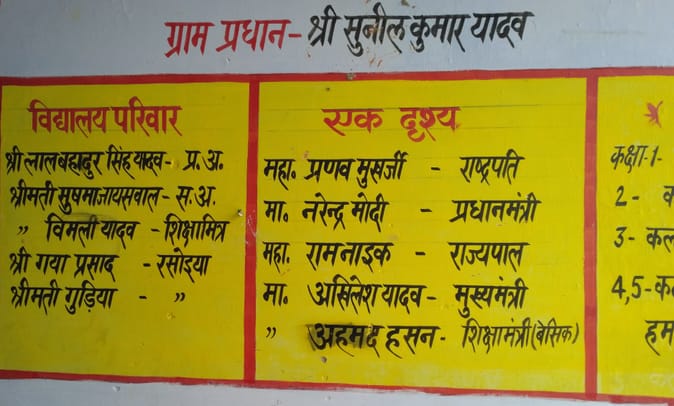 ग्राम प्रधान- श्री सुनील कुमार यादव
विद्यालय परिवार
श्री लालबहादुर सिंह यादव- प्र.अ.
श्रीमती सुषमा जायसवाल- स.अ.
" विमली यादव - शिक्षामित्र
श्री गया प्रसाद - रसोइया
श्रीमती गुड़िया - "
एक दृश्य
महा. प्रणव मुखर्जी - राष्ट्रपति
मा. नरेन्द्र मोदी - प्रधानमंत्री
महा. राम नाइक - राज्यपाल
मा. अखिलेश यादव- मुख्यमंत्री
" अहमद हसन- शिक्षामंत्री(बेसिक)
कक्षा-1-
2-
3- कल
4,5-क
हम